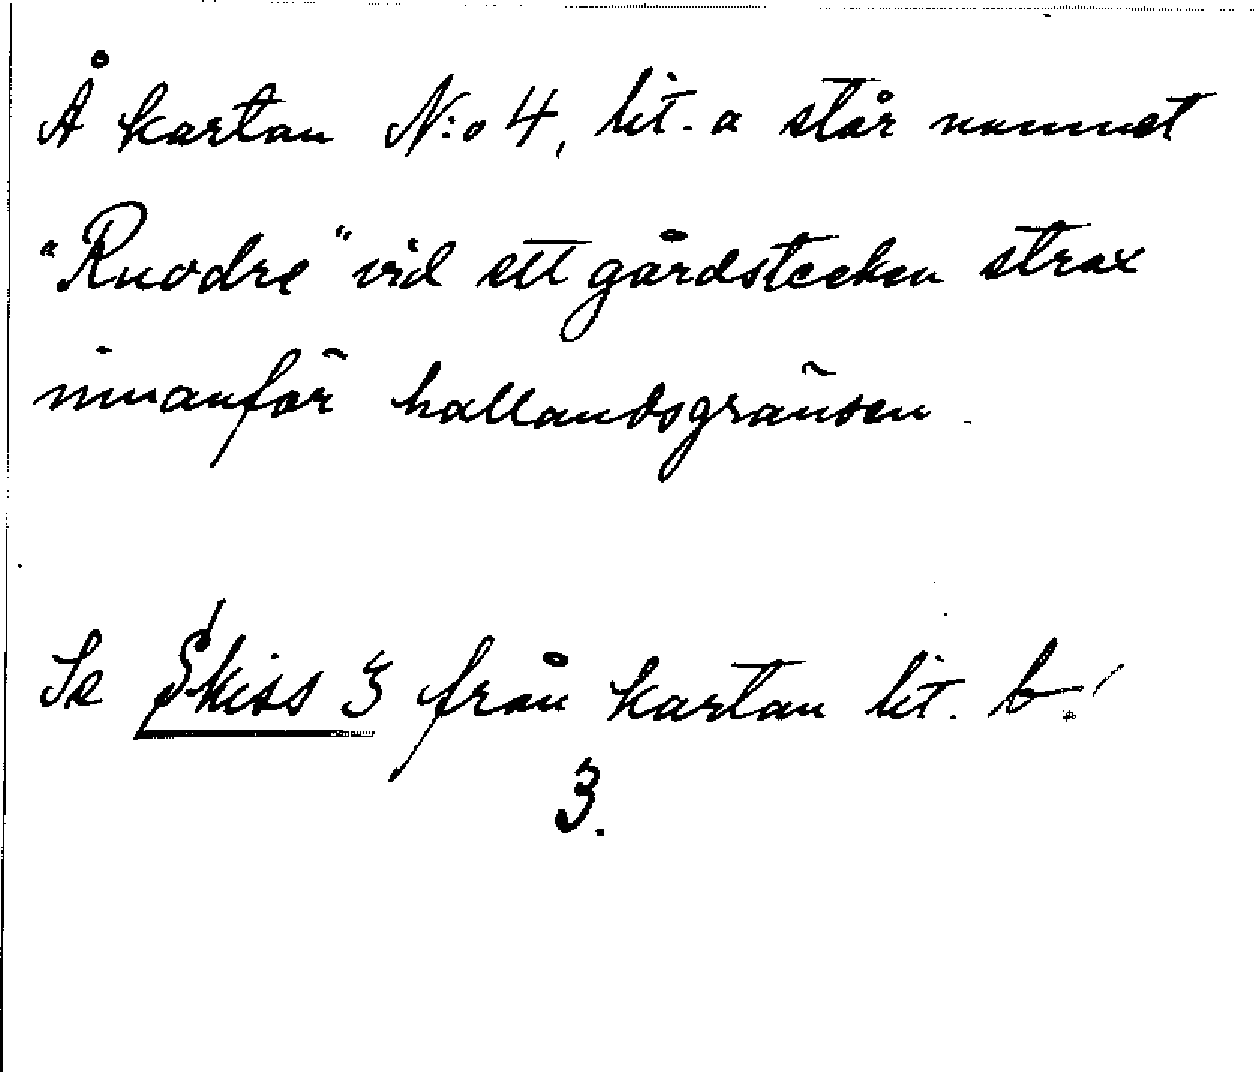 Å kartan N:o 4, lit. a står namnet
"Ruodre" vid ett gårdstecken strax
innanför hallandsgränsen.
Se Skiss 3 från kartan lit. b!
3.